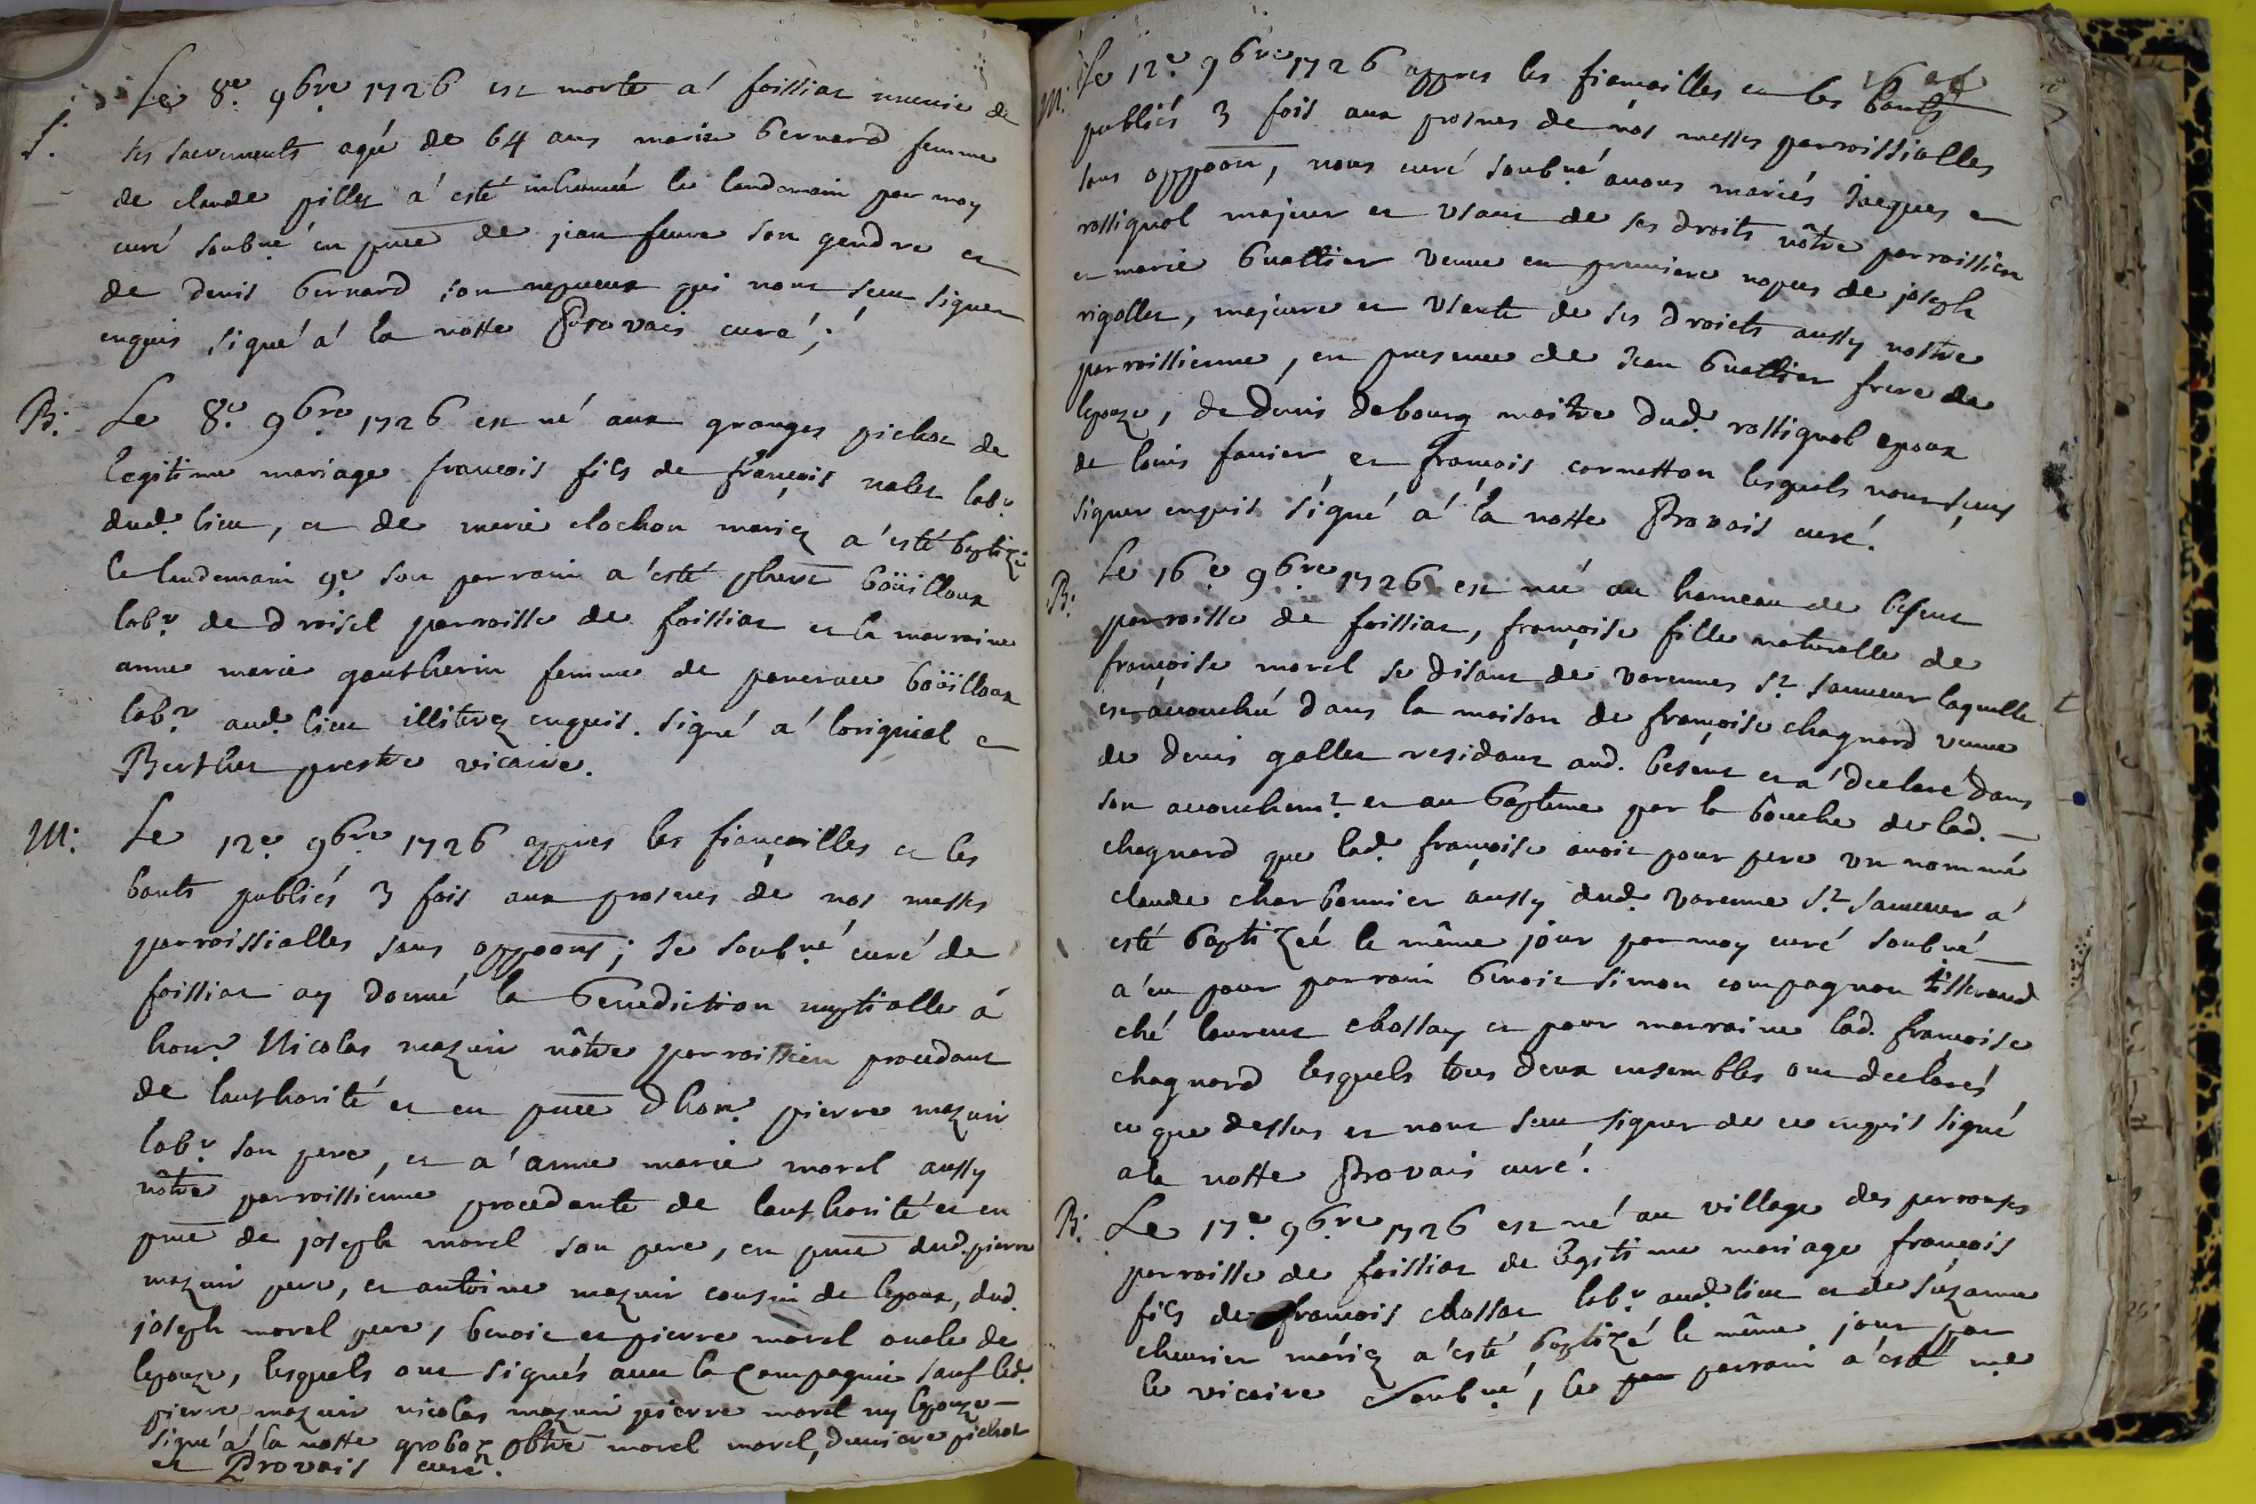 S. Le 8e. 9bre 1726 est morte a' foissiat munie de
ses sacrements agé de 64 ans marie bernard femme
de claude pillet a' esté inhumeé le landemain par moy
curé soubné en pnce de jean feure son gendre et
de denis bernard son nepueux qui n'ont sceu signer
enquis signé a' la notte Provais curé;
B. Le 8e. 9bre 1726 est né aux granges pichot de
legitime mariage francois fils de françois nalet labr
dud. lieu, et de marie clochon mariez a' esté baptizé
le landemain 9e son parrain a' esté bouilloux
labr de droisel parroisse de foissiat et la marraine
anne marie gautherin femme de pancrace boüilloux
labr aud. lieu illiterez enquis. signé a' lorignial
Berthet prestre vicaire.
M. Le 12e 9bre 1726 appres les fiançailles et les
bants publiés 3 fois aux prosnes de nos messes
parroissialles sans oppoons; Je soubné curé de
foissiat ay donné la benediction nuptialle á
honr. Nicolas mazuir nôtre parroissien procedant
de lauthorité et en pnce dhonr. pierre mazuir
labr son pere, et a' anne marie morel aussy
nôtre parroissienne procedante de lauthorité et en
pnce de joseph morel son pere, en pnce dud. pierre
mazuir pere, et antoine mazuir cousin de lepoux, dud.
joseph morel pere, benoit et pierre morel oncle de
lepouze, lesquels ont signés auec la Compagnie sauf led.
pierre mazuir nicolas mazuir pierre morel ny lepouze
signé a' la notte groboz pbtre morel morel, pichot
et Provais curé.
M. Le 12e 9bre 1726 appres les fiançailles et les bants
publiés 3 fois aux prosnes de nos messes parroissialles
sans oppoon, nous curé soubné auons mariés Jacques
rossignol majeur et usant de ses droits nôtre parroissien
et marie buattier veuue en premiere nopces de joseph
rigollet, majeure et usante de ses droicts aussy nostre
parroissienne, en presence de Jean buattier frere de
lepouze, de denis debourg maitre dud. rossignol epoux
de louis fauier et françois cornetton lesquels n'ont sceus
signer enquis signé a' la notte Provais curé.
B. Le 16e 9bre 1726 est neé au hameau de besent
parroisse de foissiat, françoise fille naturelle de
françoise morel se disant de varennes st sauueur laquelle
est acouchée dans la maison de françoise chagnard veuue
de denis gallet residant aud. besent et a' declaré dans
son acouchemt et au baptême par la bouche de lad.
chagnard que lad. françoise auoit pour pere un nommé
claude charbonnier aussy dud. varenne st sauueur a'
esté baptizeé le même jour par moy curé soubné
a' eu pour parrain benoit simon compagnon tisserand
ché laurent chossay et pour marraine lad. françoise
chagnard lesquels tous deux ensembles ont declarés
ce que dessus et n'ont sceu signer de ce enquis signé
a la notte Provais curé.
B. Le 17e 9bre 1726 est né au village des parrouses
parroisse de foissiat de legitime mariage francois
fils de francois chossat labr aud. lieu et de suzanne
cheurier mariez a' esté baptizé le même jour par
le vicaire soubné, le parrain a' esté me